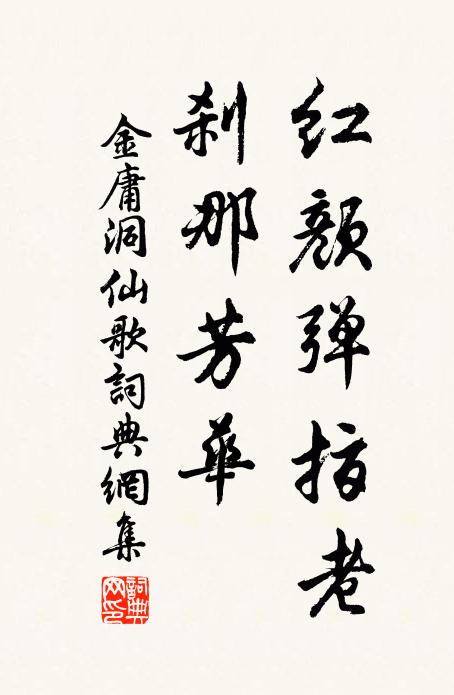 红颜弹指老
刹那芳華
金庸洞仙歌詞典網集
詞典网印